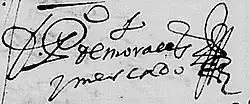 de morales
y mercado